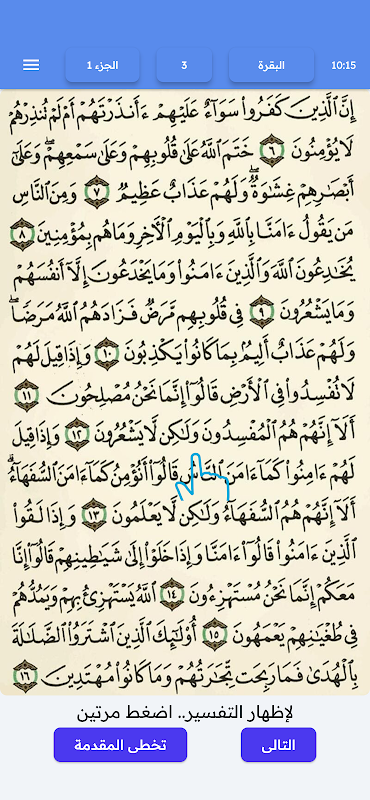 10:15 البقرة 3 الجزء 1
إِنَّ ٱلَّذِينَ كَفَرُوا۟ سَوَآءٌ عَلَيْهِمْ ءَأَنذَرْتَهُمْ أَمْ لَمْ تُنذِرْهُمْ
لَا يُؤْمِنُونَ ٦ خَتَمَ ٱللَّهُ عَلَىٰ قُلُوبِهِمْ وَعَلَىٰ سَمْعِهِمْ ۖ وَعَلَىٰٓ
أَبْصَـٰرِهِمْ غِشَـٰوَةٌ ۖ وَلَهُمْ عَذَابٌ عَظِيمٌ ٧ وَمِنَ ٱلنَّاسِ
مَن يَقُولُ ءَامَنَّا بِٱللَّهِ وَبِٱلْيَوْمِ ٱلْـَٔاخِرِ وَمَا هُم بِمُؤْمِنِينَ ٨
يُخَـٰدِعُونَ ٱللَّهَ وَٱلَّذِينَ ءَامَنُوا۟ وَمَا يَخْدَعُونَ إِلَّآ أَنفُسَهُمْ
وَمَا يَشْعُرُونَ ٩ فِى قُلُوبِهِم مَّرَضٌ فَزَادَهُمُ ٱللَّهُ مَرَضًا ۖ
وَلَهُمْ عَذَابٌ أَلِيمٌۢ بِمَا كَانُوا۟ يَكْذِبُونَ ١٠ وَإِذَا قِيلَ لَهُمْ
لَا تُفْسِدُوا۟ فِى ٱلْأَرْضِ قَالُوٓا۟ إِنَّمَا نَحْنُ مُصْلِحُونَ ١١
أَلَآ إِنَّهُمْ هُمُ ٱلْمُفْسِدُونَ وَلَـٰكِن لَّا يَشْعُرُونَ ١٢ وَإِذَا قِيلَ
لَهُمْ ءَامِنُوا۟ كَمَآ ءَامَنَ ٱلنَّاسُ قَالُوٓا۟ أَنُؤْمِنُ كَمَآ ءَامَنَ ٱلسُّفَهَآءُ ۗ
أَلَآ إِنَّهُمْ هُمُ ٱلسُّفَهَآءُ وَلَـٰكِن لَّا يَعْلَمُونَ ١٣ وَإِذَا لَقُوا۟
ٱلَّذِينَ ءَامَنُوا۟ قَالُوٓا۟ ءَامَنَّا وَإِذَا خَلَوْا۟ إِلَىٰ شَيَـٰطِينِهِمْ قَالُوٓا۟ إِنَّا
مَعَكُمْ إِنَّمَا نَحْنُ مُسْتَهْزِءُونَ ١٤ ٱللَّهُ يَسْتَهْزِئُ بِهِمْ وَيَمُدُّهُمْ
فِى طُغْيَـٰنِهِمْ يَعْمَهُونَ ١٥ أُو۟لَـٰٓئِكَ ٱلَّذِينَ ٱشْتَرَوُا۟ ٱلضَّلَـٰلَةَ
بِٱلْهُدَىٰ فَمَا رَبِحَت تِّجَـٰرَتُهُمْ وَمَا كَانُوا۟ مُهْتَدِينَ ١٦
لإظهار التفسير.. اضغط مرتين
التالى
تخطى المقدمة